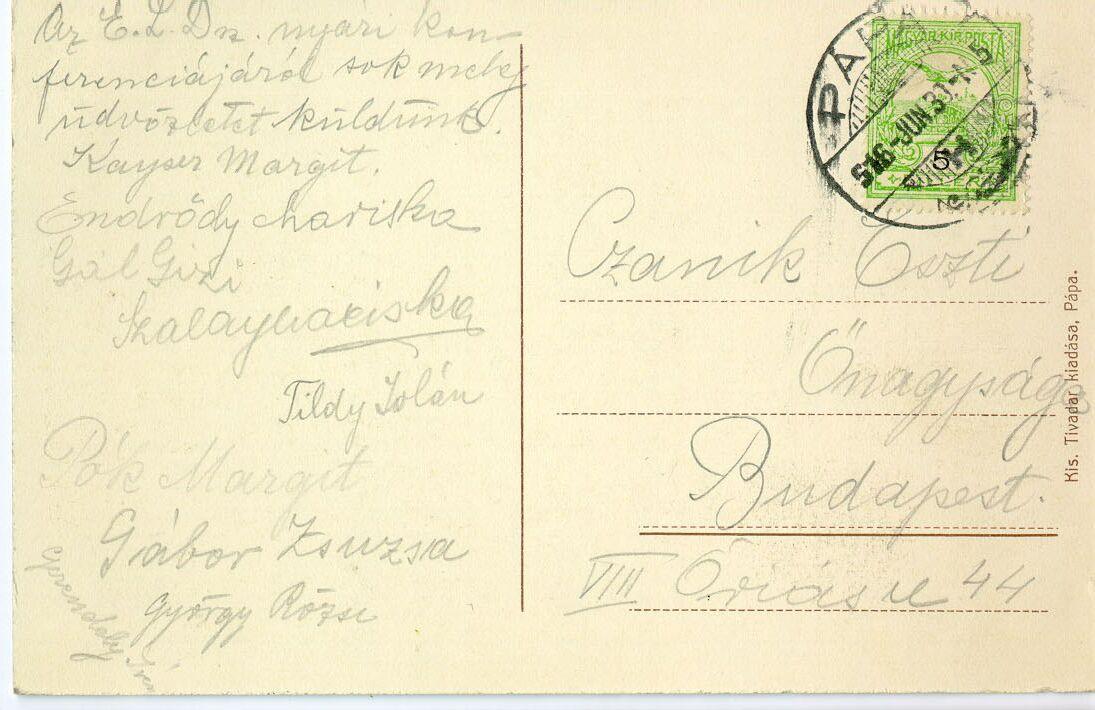 Az E. L. Dr. nyári kon-
ferenciájáról sok meleg
üdvözletet küldünk.
Kayser Margit.
Endrődy Mariska
Gál Gizi
Szalay Mariska
Tildy Jolán
Pók Margit
Gábor Zsuzsa
György Rózsi
PÁPA
916 JUN 30
MAGYAR KIR. POSTA
5
Czanik Eszti
Őnagysága
Budapest.
VIII Óriás u 44
Kis. Tivadar kiadása, Pápa.